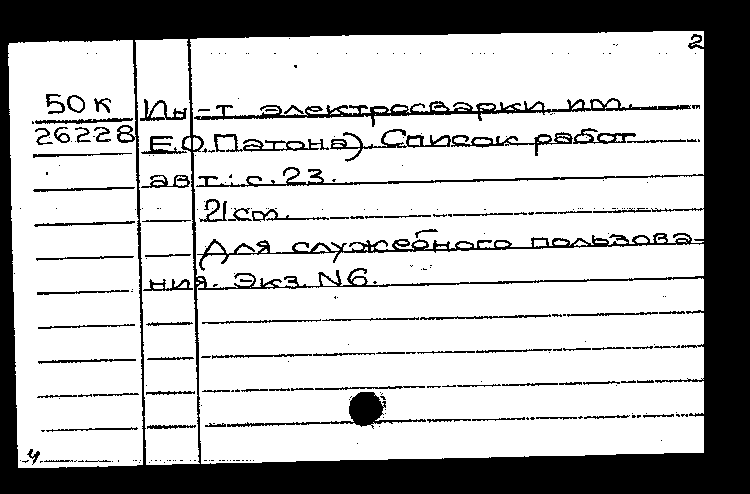 2
50 к Ин-т электросварки им.
26228 Е.О.Патона). Список работ
авт.: с. 23.
21 см.
Для служебного пользова-
ния. Экз. N6.